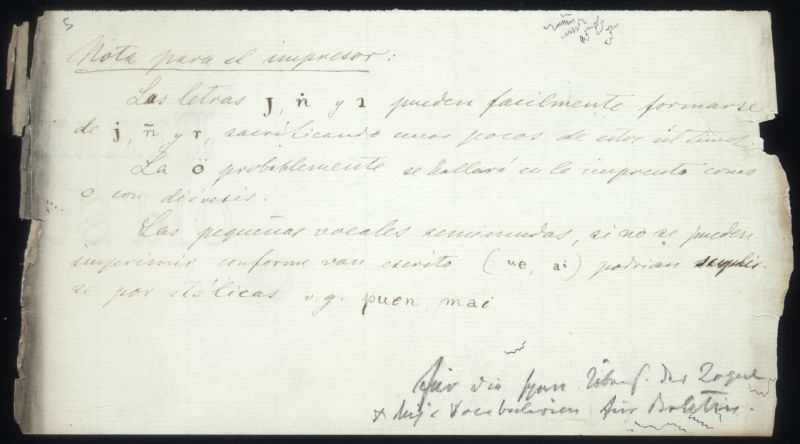 5
Nota para el impresor:
Las letras ȷ, ṅ y ɿ pueden facilmente formarse
de j, ñ y r, sacrificando unos pocos de estos últimos.
La ö probablemente se hallará en la imprenta como
o con diéresis.
Las pequeñas vocales semimudas, si no se pueden
imprimir conforme van escrito (ue, ai) podrian suplir-
se por itálicas v.g. puen mai
Für die span. der Zoque
+ Mije Vocabularien für